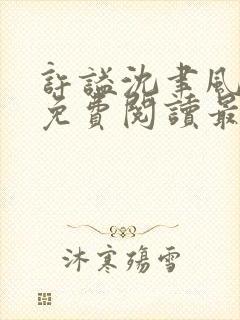 許謐沈聿風
免費閱讀最
沐寒殤雪